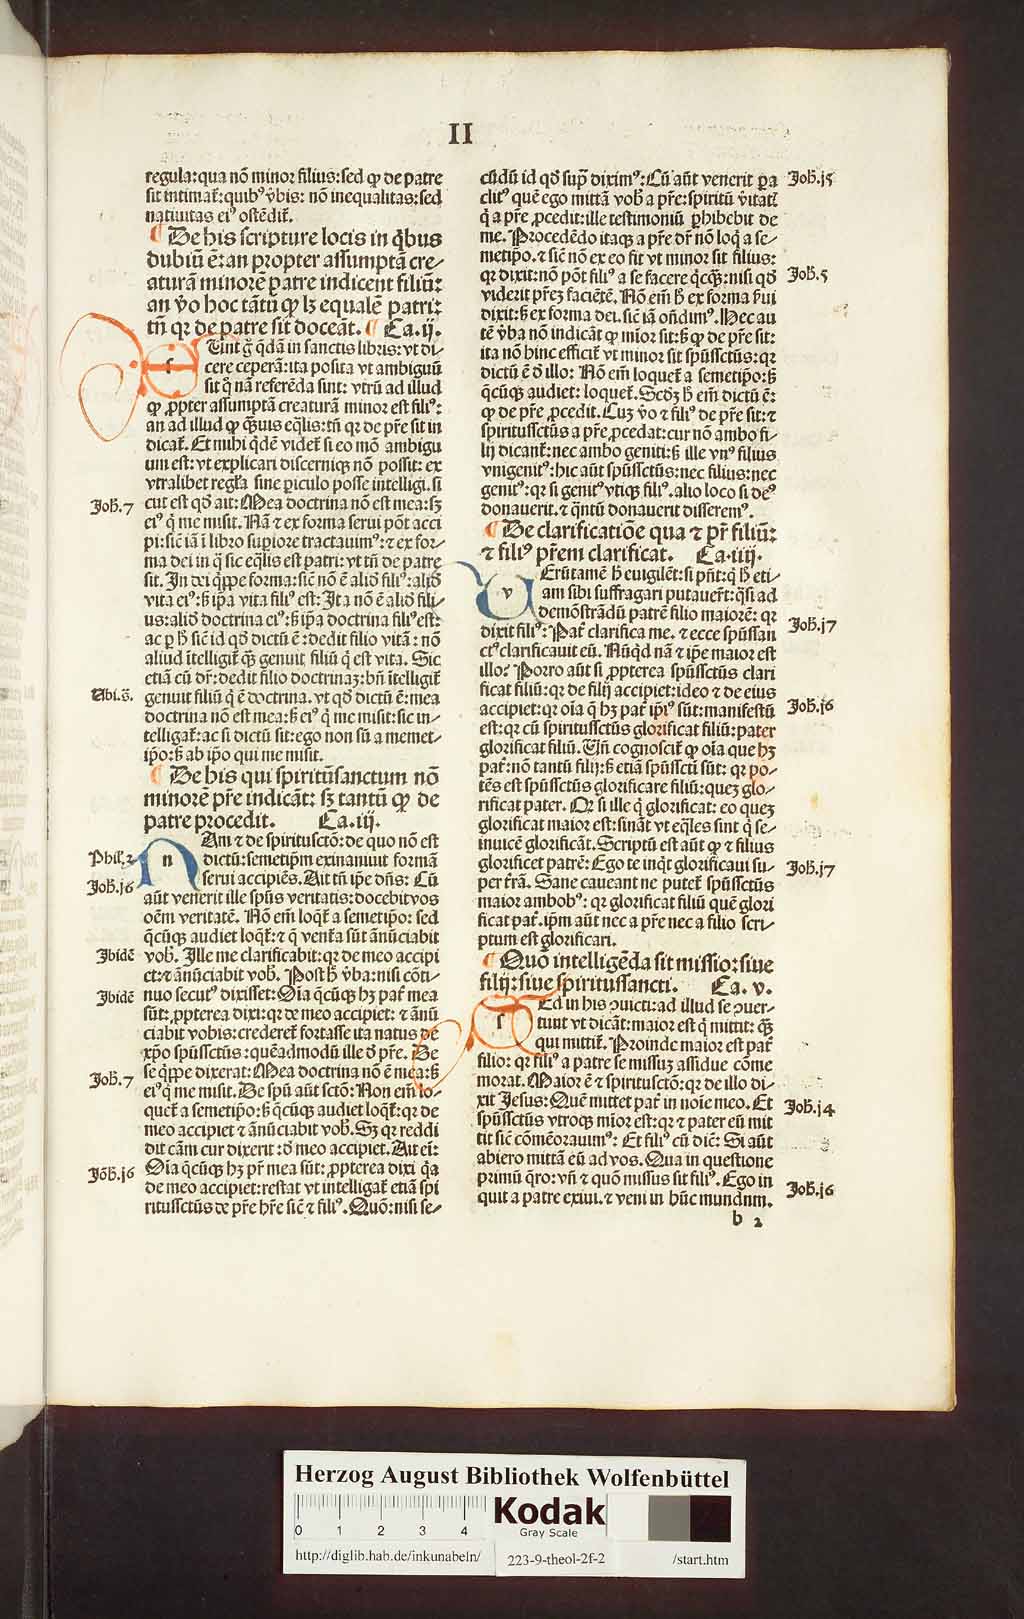 II
regula:qua nō minor filius:sed ꝙ de patre
sit intimat᷑:quibꝰ v̄bis: nō inequalitas:sed
natiuitas eiꝰ ostēdit᷑.
¶ De his scripture locis in q̇bus
dubiū ē:an propter assumptā cre⸗
aturā minorē patre indicent filiū:
an v̄o hoc tātū ꝙ lꝫ equalē patri:
tn̄ qꝛ de patre sit doceāt. ¶ Ca.ij.
s Unt g̊ q̄dā in sanctis libris: vt di⸗
cere ceperā:ita posita vt ambiguū
sit q̇ nā referēda sint: vtrū ad illud
ꝙ ꝓpter assumptā creaturā minor est filiꝰ:
an ad illud ꝙ q̄uis eq̄lis:tn̄ qꝛ de pr̄e sit in
dicat᷑. Et mihi q̇dē videt᷑ si eo mō ambigu
um est: vt explicari discerniqꝫ nō possit: ex
vtralibet regl̄a sine ꝑiculo posse intelligi. si
Joh̄.7
cut est qd̄ ait: Mea doctrina nō est mea:sꝫ
eiꝰ q̇ me misit. Nā ⁊ ex forma serui pōt acci
pi:sic̄ iā ī libro supiore tractauimꝰ:⁊ ex for⸗
ma dei in q̇ sic eq̄lis est patri: vt tn̄ de patre
sit. In dei q̄ppe forma:sic̄ nō ē aliđ filiꝰ:aliđ
vita eiꝰ:ꞩ ip̄a vita filiꝰ est: Ita nō ē aliđ fili⸗
us:aliđ doctrina eiꝰ:ꞩ ip̄a doctrina filiꝰ est:
ac ꝑ ħ sic̄ id qđ dictū ē :dedit filio vitā: nō
aliud ītelligit᷑ q̄ꝫ genuit filiū q̇ est vita. Sic
etiā cū dr̄:dedit filio doctrinaꝫ:bn̄ ītelligit᷑
Ubi.s̄.
genuit filiū q̇ ē doctrina. vt qđ dictū ē:mea
doctrina nō est mea:ꞩ eiꝰ q̇ me misit:sic in⸗
telligat᷑:ac si dictū sit:ego non sū a memet⸗
ip̄o:ꞩ ab ip̄o qui me misit.
¶ De his qui spiritūsanctum nō
minorē pr̄e indicāt: sꝫ tantū ꝙ de
patre procedit. Ca.iij.
n Am ⁊ de spiritusctō:de quo nō est
Phil.2
dictū:semetip̄m exinaniuit formā
serui accipiēs. Ait tn̄ ip̄e dn̄s: Cū
Joh̄.16
aūt venerit ille spūs veritatis:docebit vos
oēm veritatē. Nō em̄ loq̄t᷑ a semetip̄o: sed
q̄cūqꝫ audiet loq̄t᷑:⁊ q̄ vent᷑a sūt ānūciabit
Ibidē
vob̄. Ille me clarificabit:qꝛ de meo accipi
et:⁊ ānūciabit vob̄. Post ħ v̄ba:nisi cōti⸗
Ibidē
nuo secutꝰ dixisset: Oīa q̄cūqꝫ hꝫ pat᷑ mea
sūt: ꝓpterea dixi:qꝛ de meo accipiet: ⁊ ānū
ciabit vobis: crederet᷑ fortasse ita natus de
xp̄o spūssctūs : quēadmodū ille đ pr̄e. De
se q̄ppe dixerat: Mea doctrina nō ē mea:ꞩ
Joh̄.7
eiꝰ q̇ me misit. De spū aūt sctō: Non em̄ lo⸗
quet᷑ a semetip̄o:ꞩ q̄cūqꝫ audiet loq̄t᷑:qꝛ de
meo accipiet ⁊ ānūciabit vob̄. Sꝫ qꝛ reddi
dit cām cur dixerit :đ meo accipiet. Ait ei:
Joh̄.16
Oīa q̄cūqꝫ hꝫ pr̄ mea sūt: ꝓpterea dixi q̇a
de meo accipiet:restat vt intelligat᷑ etiā spi
ritussctūs de pr̄e hr̄e sic̄ ⁊ filiꝰ. Quō:nisi se⸗
cūdū id qđ supͣ diximꝰ: Cū aūt venerit ꝑa
Joh̄.15
clitꝰ quē ego mittā vob̄ a pr̄e:spiritū v̄itatꝭ
q̇ a pr̄e ꝓcedit:ille testimoniū ꝑhibebit de
me. Procedēdo itaqꝫ a pr̄e dr̄ nō loq̇ a se⸗
metip̄o. ⁊ sic̄ nō ex eo fit vt minor sit filius:
qꝛ dixit:nō pōt filiꝰ a se facere q̇cq̄ꝫ:nisi qđ
Joh̄.5
viderit pr̄eꝫ faciētē. Nō em̄ ħ ex forma ẜui
dixit:ꞩ ex forma dei. sic̄ iā on̄dimꝰ. Hec au
tē v̄ba nō indicāt ꝙ mīor sit:ꞩ ꝙ de pr̄e sit:
ita nō hinc efficit᷑ vt minor sit spūssctūs: qꝛ
dictū ē đ illo: Nō em̄ loquet᷑ a semetip̄o:ꞩ
q̄cūqꝫ audiet: loquet᷑. Scđꝫ ħ em̄ dictū ē:
ꝙ de pr̄e ꝓcedit. Cuꝫ v̄o ⁊ filiꝰ de pr̄e sit:⁊
spiritussctūs a pr̄e ꝓcedat:cur nō ambo fi⸗
lij dicant᷑:nec ambo geniti:ꞩ ille vnꝰ filius
vnigenitꝰ: hic aūt spūssctūs:nec filius:nec
genitꝰ: qꝛ si genitꝰ vtiqꝫ filiꝰ. alio loco si deꝰ
donauerit. ⁊ q̄ntū donauerit disseremꝰ.
¶ De clarificatiōe qua ⁊ pr̄ filiū:
⁊ filiꝰ pr̄em clarificat. Ca.iiij.
v Erūtamē ħ euigilēt:si pn̄t:q̇ ħ eti⸗
am sibi suffragari putauer̄t:q̄si ad
demōstrādū patrē filio maiorē: qꝛ
Joh̄.17
dixit filiꝰ: Pat᷑ clarifica me. ⁊ ecce spūssan
ctꝰ clarificauit eū. Nūq̇d nā ⁊ ip̄e maior est
illo? Porro aūt si ꝓpterea spūssctūs clari
ficat filiū:qꝛ de filij accipiet:ideo ⁊ de eius
Joh̄.16
accipiet:qꝛ oīa q̄ hꝫ pat᷑ ip̄iꝰ sūt:manifestū
est:qꝛ cū spiritussctūs glorificat filiū:pater
glorificat filiū. Un̄ cognoscit᷑ ꝙ oīa que hꝫ
pat᷑:nō tantū filij:ꞩ etiā spūssctī sūt: qꝛ po⸗
tēs est spūssctūs glorificare filiū:quez glo⸗
rificat pater. Qꝛ si ille q̇ glorificat: eo quez
glorificat maior est:sināt vt eq̄les sint q̇ se⸗
inuicē glorificāt. Scriptū est aūt ꝙ ⁊ filius
glorificet patrē: Ego te inq̇t glorificaui su⸗
Joh̄.17
per t᷑rā. Sane caueant ne putet᷑ spūssctūs
maior ambobꝰ: qꝛ glorificat filiū quē glori
ficat pat᷑. ip̄m aūt nec a pr̄e nec a filio scri⸗
ptum est glorificari.
¶ Quō intelligēda sit missio:siue
filij:siue spiritussancti. Ca. v.
s Ed in his ꝯuicti:ad illud se ꝯuer⸗
tunt vt dicāt:maior est q̇ mittit: q̄ꝫ
qui mittit᷑. Proinde maior est pat᷑
filio: qꝛ filiꝰ a patre se missuꝫ assidue cōme
morat. Maior ē ⁊ spiritusctō:qꝛ de illo di⸗
xit Jesus: Quē mittet pat᷑ in noīe meo. Et
Joh̄.14
spūssctūs vtroqꝫ mīor est:qꝛ ⁊ pater eū mit
tit sic̄ cōmēorauimꝰ: Et filiꝰ cū dic̄: Si aūt
abiero mittā eū ad vos. Qua in questione
primū q̄ro: vn̄ ⁊ quō missus sit filiꝰ. Ego in
Joh̄.16
quit a patre exiui. ⁊ veni in hūc mundnm.
b 2
Herzog August Bibliothek Wolfenbüttel
0 1 2 3 4
Kodak
Gray Scale
http://diglib.hab.de/inkunabeln/ 223-9-theol-2f-2 /start.htm